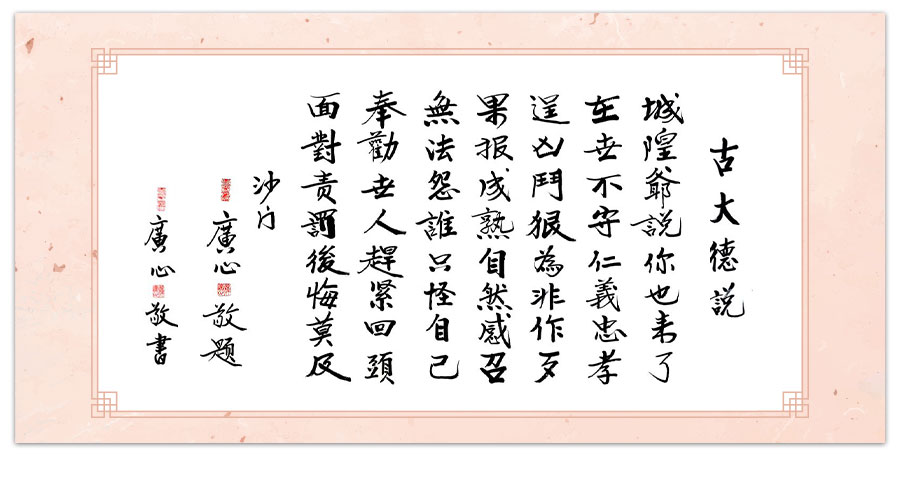 古大德說
城隍爺說你也来了
在世不守仁義忠孝
逞凶鬥狠為非作歹
果报成熟自然感召
無法怨誰只怪自己
奉勸世人趕緊回頭
面對责罰後悔莫及
沙门
廣心敬題
廣心敬書